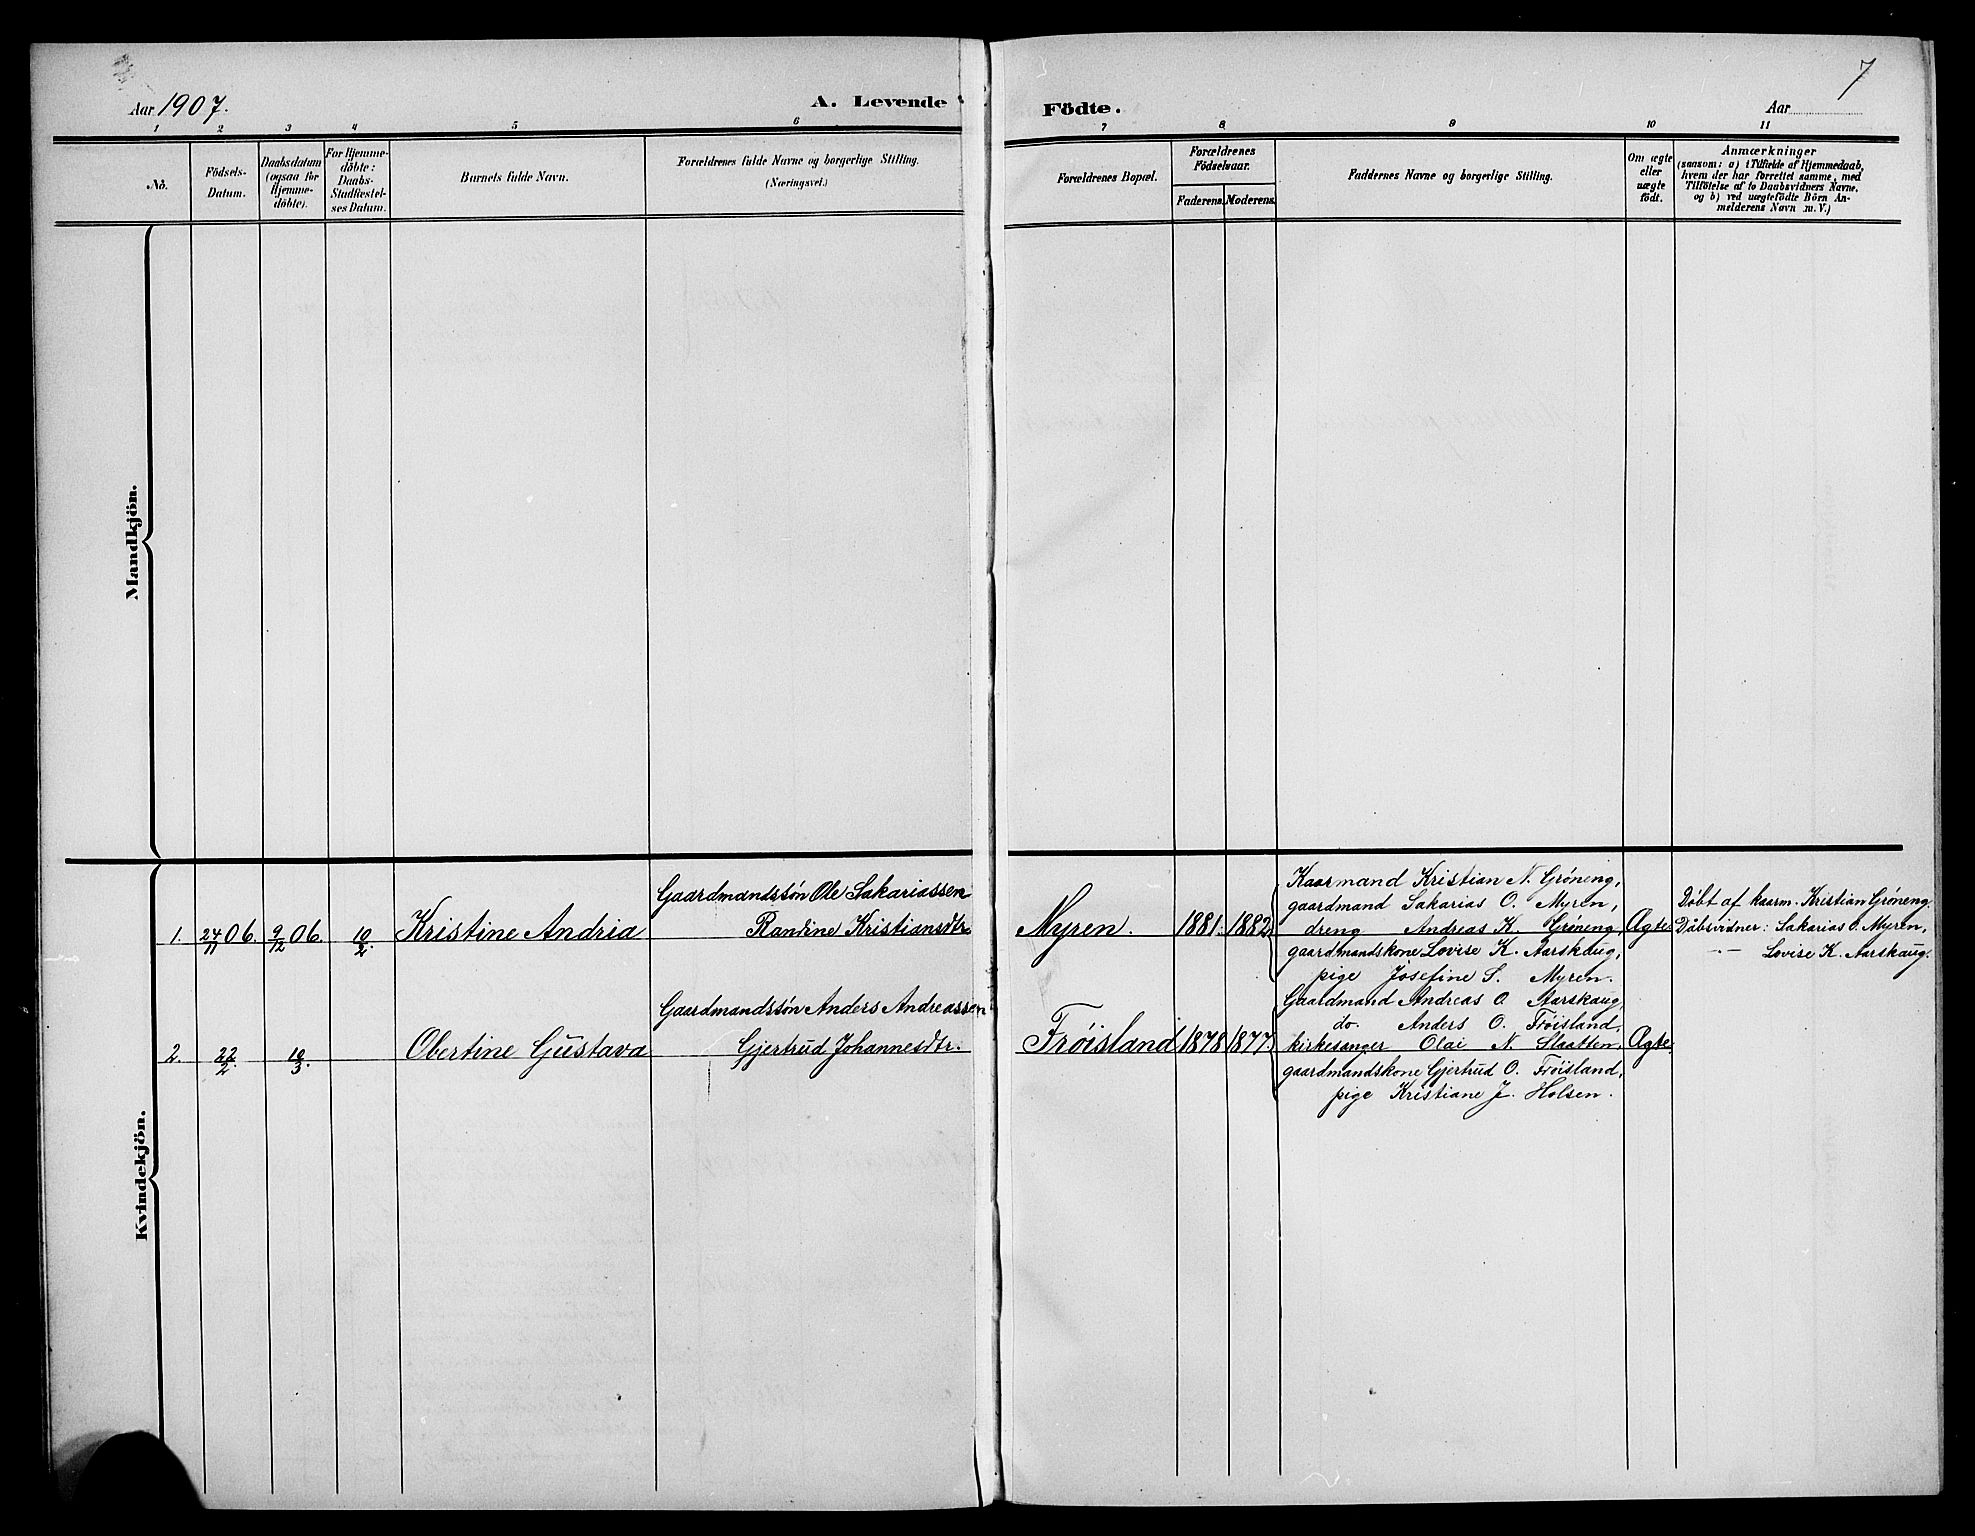 7
Aar 1907.
A. Levende
Födte.
Aar
1 2 3 4 5 6 7 8 9 10 11
No.
Födsels-
Datum.
Daabsdatum
(ogsaa for
Hjemme-
döbte).
For Hjemme-
döbte:
Daabs-
Stadfæstel-
ses Datum.
Barnets fulde Navn.
Forældrenes fulde Navne og borgerlige Stilling.
(Næringsvei.)
Forældrenes Bopæl.
Forældrenes
Födselsaar.
Faderens. Moderens.
Faddernes Navne og borgerlige Stilling.
Om ægte
eller
uægte
födt.
Anmærkninger
(saasom: a) i Tilfælde af Hjemmedaab,
hvem der har forrettet samme, med
Tilföielse af to Daabsvidners Navne,
og b) ved uægtefödte Börn An-
melderens Navn m. V.)
Mandkjön.
Kvindekjön.
1. 24/11 06. 9/12 06. 10/2. Kristine Andria
Gaardmandssøn Ole Sakariassen
Randine Kristiansdtr.
Myren. 1881. 1882.
Kaarmand Kristian N. Grøneng,
gaardmand Sakarias O. Myren,
dreng Andreas K. Grøneng,
gaardmandskone Lovise K. Aarskaug,
pige Josefine S. Myren.
Ægte.
Døbt af kaarm. Kristian Grøneng.
Døbsvidner: Sakarias O. Myren,
-"- Lovise K. Aarskaug.
2. 22/2. 10/3. Obertine Gustava
Gaardmandssøn Anders Andreassen
Gjertrud Johannesdtr.
Frøisland 1878 1877.
Gaardmand Andreas O. Aarskaug,
do. Anders O. Frøisland,
kirkesanger Olai N. Slaatten,
gaardmandskone Gjertrud O. Frøisland,
pige Kristiane J. Holsen.
Ægte.